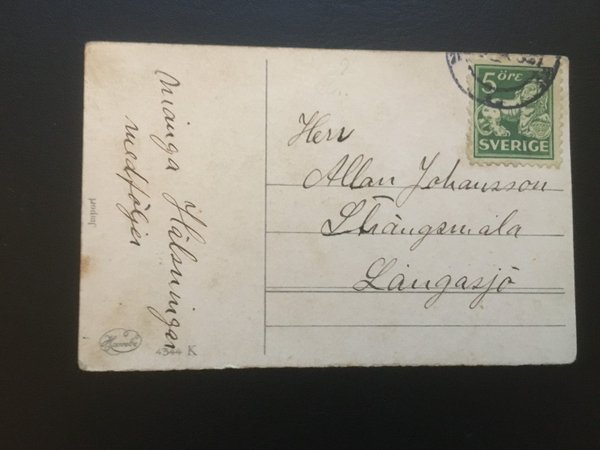 Många Hälsningar
medföljer
Importé
4344 K
5 ÖRE
SVERIGE
Herr
Allan Johansson
Strångsmåla
Långasjö